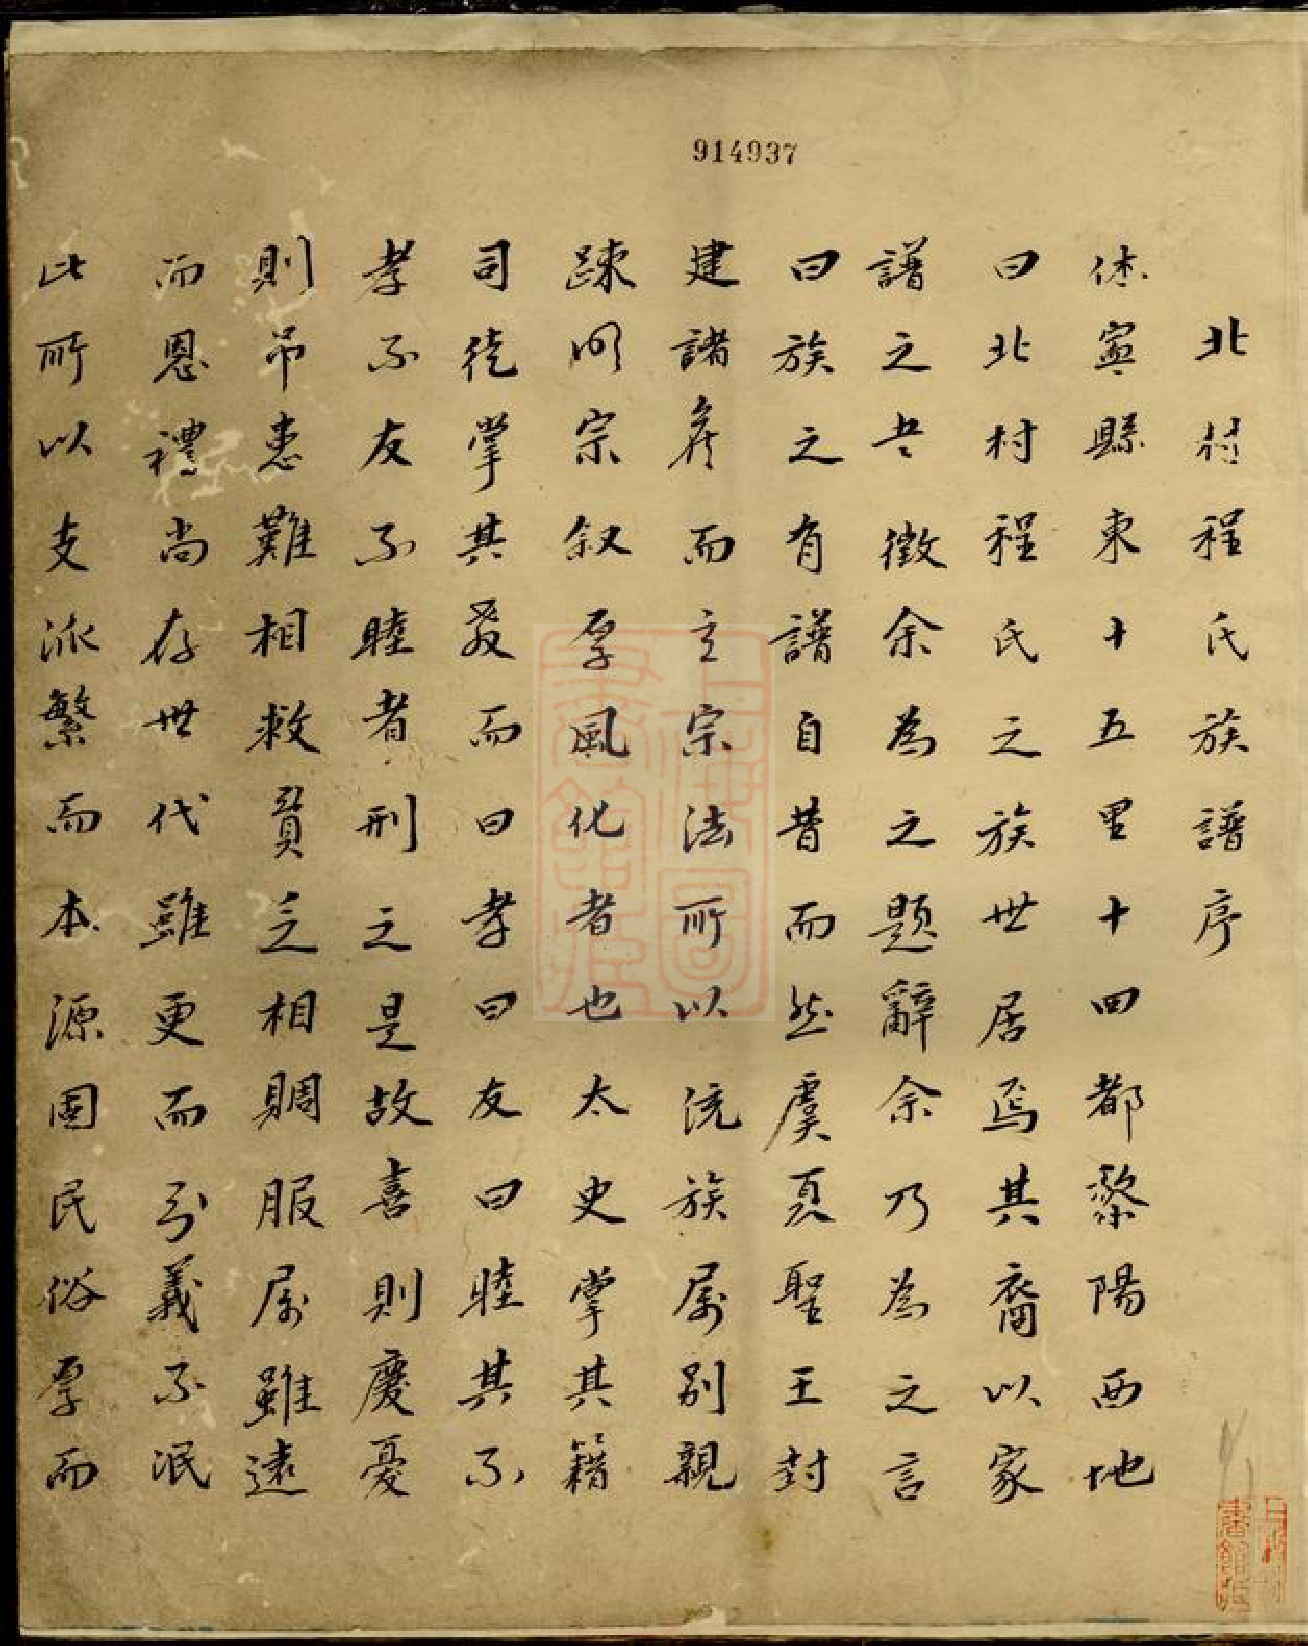 914937
北村程氏族譜序
休寧縣東十五里十四都黎陽西地
曰北村程氏之族世居焉其裔以家
譜之書徵余為之題辭余乃為之言
曰族之有譜自昔而然虞夏聖王封
建諸侯而立宗法所以統族属别親
踈明宗叙厚風化者也太史掌其籍
司徒掌其教而曰孝曰友曰睦其不
孝不友不睦者刑之是故喜則慶憂
則弔患難相救貧乏相賙服属雖遠
而恩禮尚存世代雖更而分義不泯
此所以支派繁而本源固民俗厚而
上海圖書館藏
上海圖書館藏